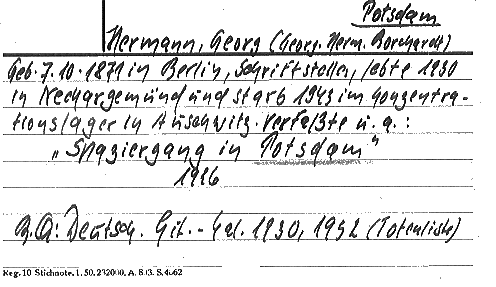 Potsdam
Hermann, Georg (Georg Herm. Borchardt)
Geb. 7.10.1871 in Berlin, Schriftsteller, lebte 1930
in Neckargemünd und starb 1943 im Konzentra-
tionslager in Auschwitz. Verfaßte u.a.:
„Spaziergang in Potsdam"
1926
B.Q.: Deutsch. Lit.-Kal. 1930, 1952 (Totenliste)
Reg. 10 Stichnote. I. 50. 232000, A. 803. S. 4662